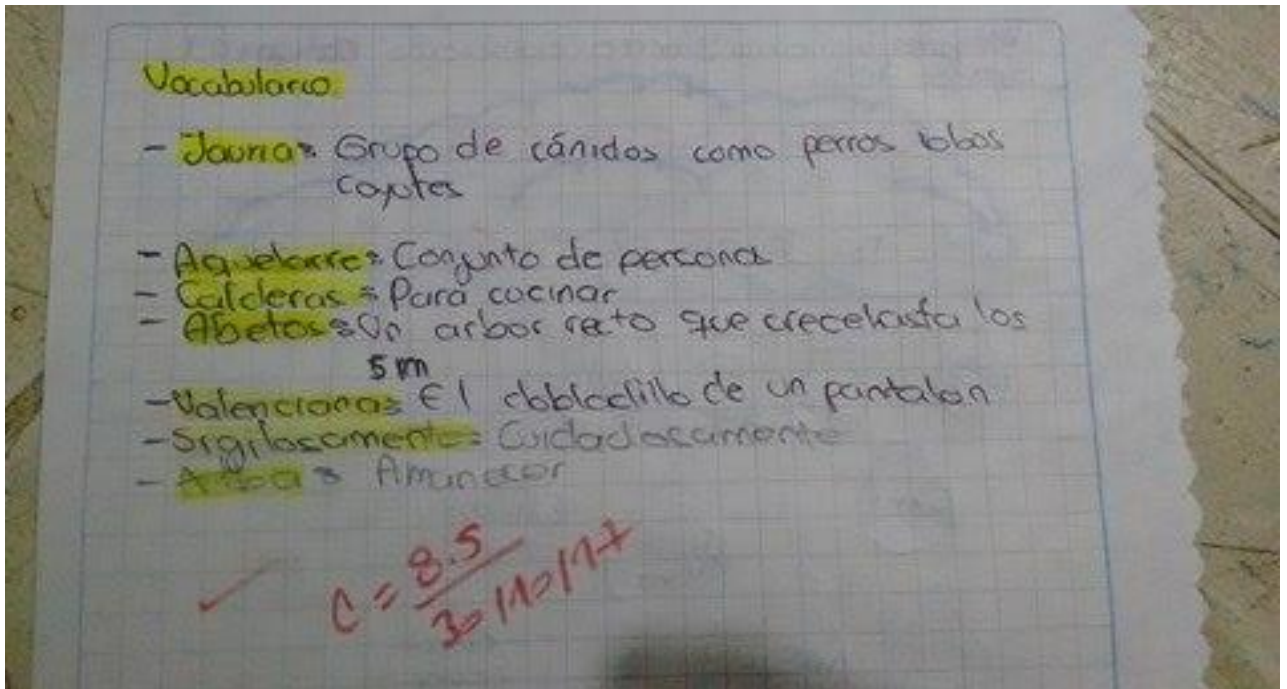 Vocabulario
- Jauria= Grupo de cánidos como perros lobos
coyotes
- Aquelarre= Conjunto de persona
- Calderas = Para cocinar
- Abetos = Un arbor recto que crece hasta los
5 m
- Valenciana= El dobladillo de un pantalon
- Sigilosamente= Cuidadosamente
- Alba = Amanecer
C = 8.5
30/10/17